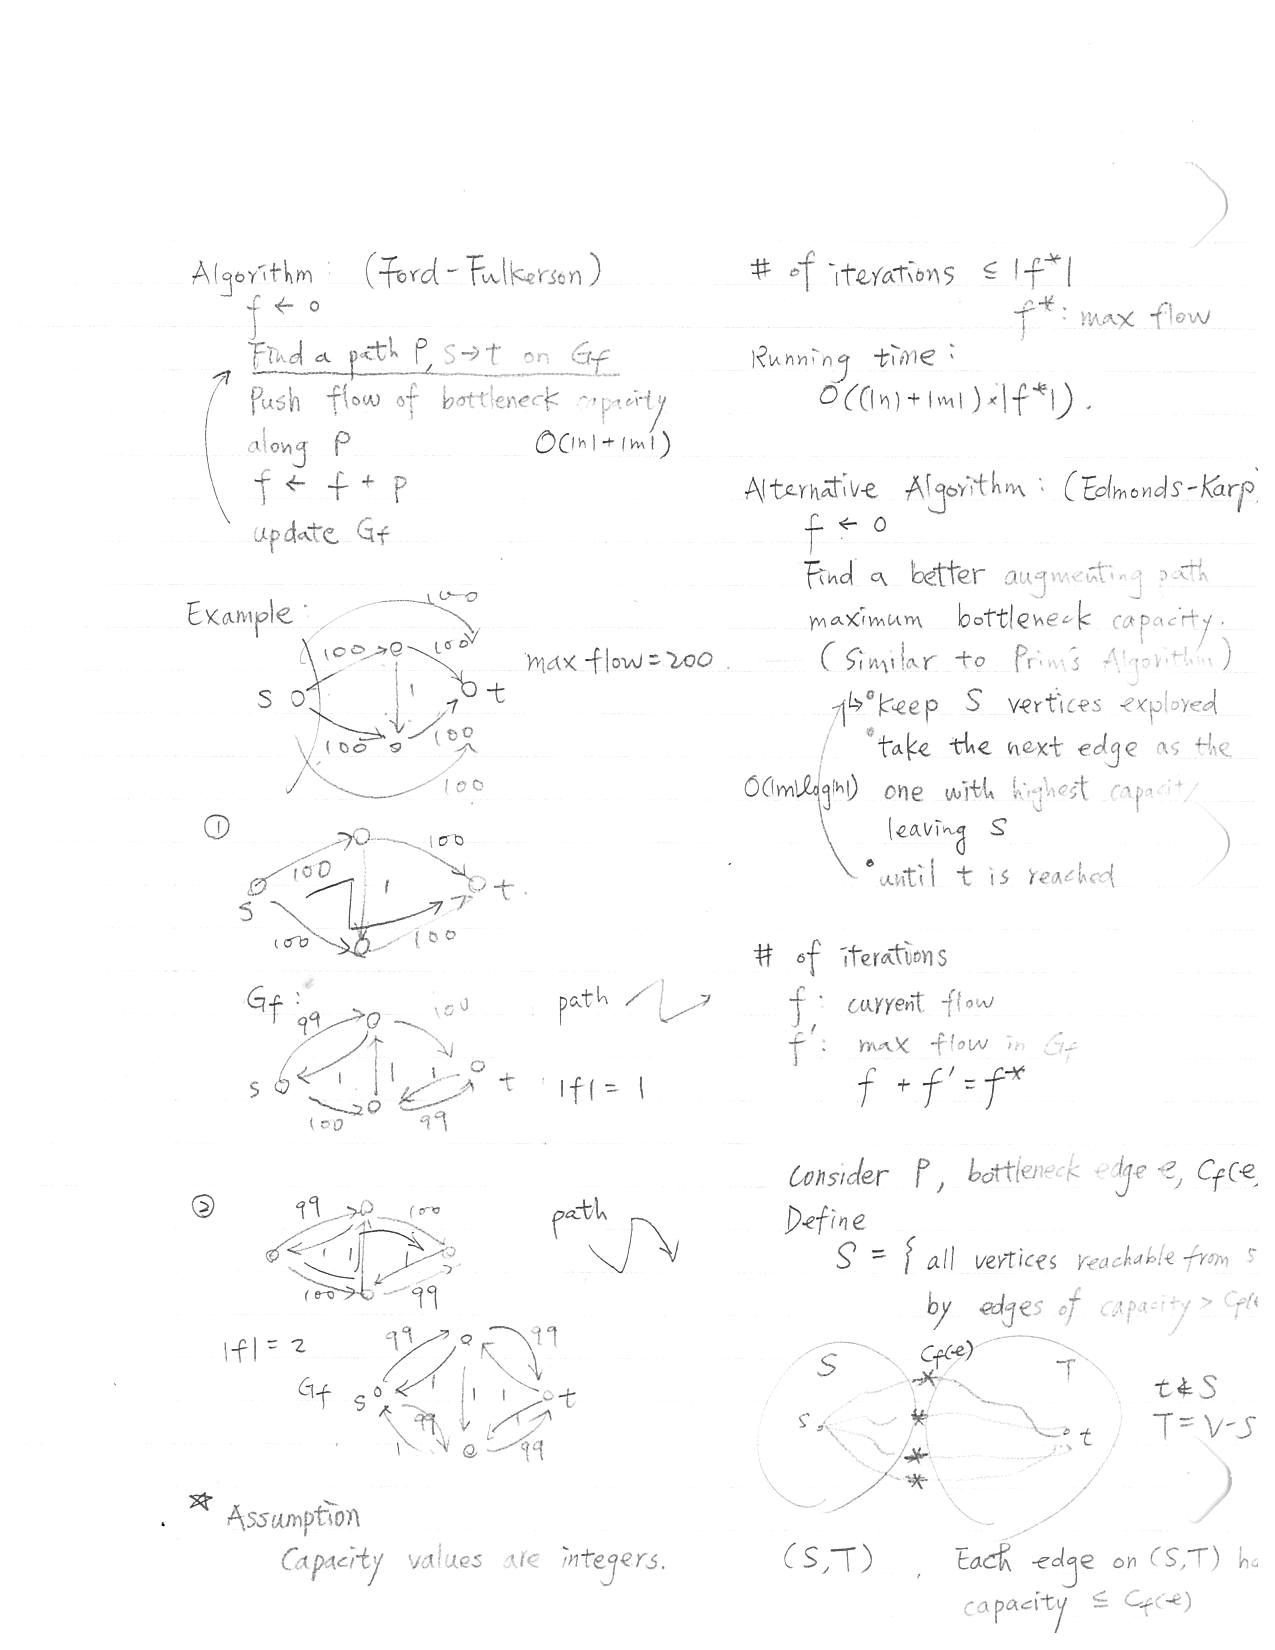 Algorithm: (Ford-Fulkerson)
f ← 0
Find a path P, s→t on Gf
Push flow of bottleneck capacity
along P O(|n|+|m|)
f ← f + p
update Gf
Example:
100
100 100
s 1 t
max flow = 200.
100 100
100
①
100 100
s 1 t.
100 100
Gf:
99 100
s 1 1 1 t
100 99
path
|f| = 1
②
99 100
1 1 1
100 99
path
|f| = 2
Gf
99 99
s 1 1 1 t
99 1
1 99
☆ Assumption
Capacity values are integers.
# of iterations ≤ |f*|
f*: max flow
Running time:
O((|n|+|m|)×|f*|).
Alternative Algorithm: (Edmonds-Karp)
f ← 0
Find a better augmenting path
maximum bottleneck capacity.
(Similar to Prim's Algorithm)
↳ • keep S vertices explored
• take the next edge as the
O(|m|log|n|) one with highest capacity
leaving S
• until t is reached
# of iterations
f: current flow
f': max flow in Gf
f + f' = f*
Consider P, bottleneck edge e, Cf(e,
Define
S = { all vertices reachable from s
by edges of capacity > Cf(e
S Cf(e) T
s t
t ∉ S
T = V-S
(S,T), Each edge on (S,T) ha
capacity ≤ Cf(e)